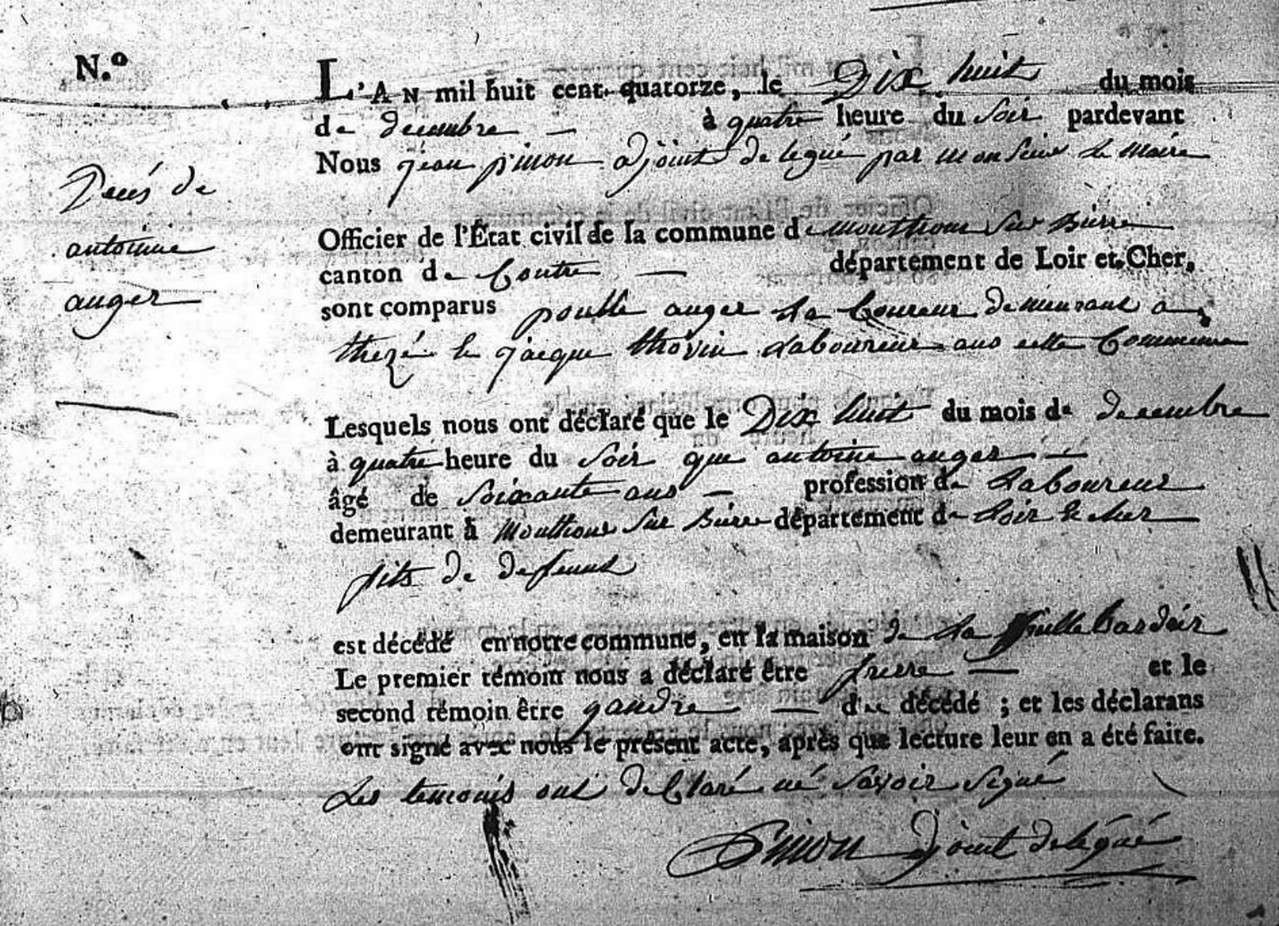 N.º
L'AN mil huit cent quatorze, le Dix huit du mois
de decembre à quatre heure du Soir pardevant
Nous jean pinon adjoint delegué par monsieur le maire
Decés de
antoinne
anger
Officier de l'État civil de la commune de monthou Sur Bievre
canton de Contre département de Loir et Cher,
sont comparus anger La Coureur demeurant a
thezé le jacque thovin Laboureur ans cette Commune
Lesquels nous ont déclaré que le Dix huit du mois de decembre
à quatre heure du Soir que antoine anger
âgé de Soixante ans profession de Laboureur
demeurant à Monthou Sur Bievre département de Loir le cher
fils de defeunt
est décédé en notre commune, en la maison de La
Le premier témoin nous a déclaré être freere et le
second témoin être gandre de décédé ; et les déclarans
ont signé avec nous le présent acte, après que lecture leur en a été faite.
Les temonis ont declaré né Savoir Signé
Pinon djoint delégué